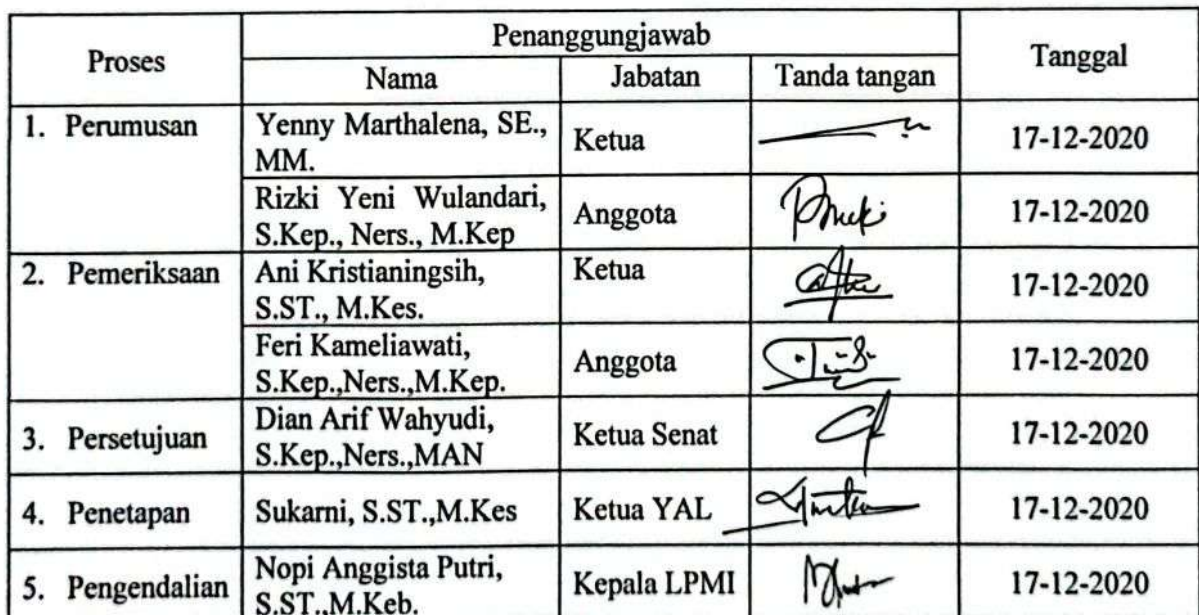 Proses
Penanggungjawab
Tanggal
Nama
Jabatan
Tanda tangan
1. Perumusan
Yenny Marthalena, SE.,
MM.
Ketua
17-12-2020
Rizki Yeni Wulandari,
S.Kep., Ners., M.Kep
Anggota
17-12-2020
2. Pemeriksaan
Ani Kristianingsih,
S.ST., M.Kes.
Ketua
17-12-2020
Feri Kameliawati,
S.Kep.,Ners.,M.Kep.
Anggota
17-12-2020
3. Persetujuan
Dian Arif Wahyudi,
S.Kep.,Ners.,MAN
Ketua Senat
17-12-2020
4. Penetapan
Sukarni, S.ST.,M.Kes
Ketua YAL
17-12-2020
5. Pengendalian
Nopi Anggista Putri,
S.ST.,M.Keb.
Kepala LPMI
17-12-2020